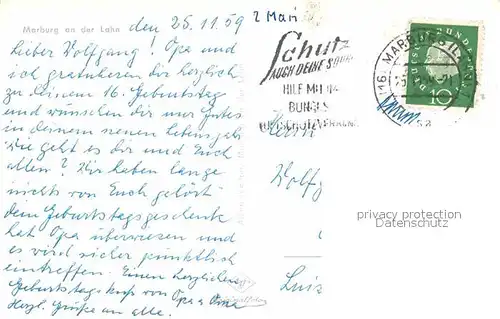 Marburg an der Lahn
den 25.11.59
Lieber Wolfgang! Opa und
ich gratulieren dir herzlich
zu Deinem 16. Geburtstag
und wünschen dir nur Gutes
in deinem neuen Lebensjahr
Wie geht es dir und Euch
allen? Wir haben lange
nichts von Euch gehört
dein Geburtstagsgeschenk
hat Opa überwiesen und
es wird sicher pünktlich
eintreffen. Einen herzlichen
Geburtstagskuß von Opa u Oma
Herzl. Grüße an alle.
2 Mari
Schutz
AUCH DEINE
HILF MIT IM
BUNDES
LUFTSCHUTZVERBAND
(16) MARBURG (LAHN)
DEUTSCHE BUNDESPOST
10
Wolfg
Luis
privacy protection
Datenschutz